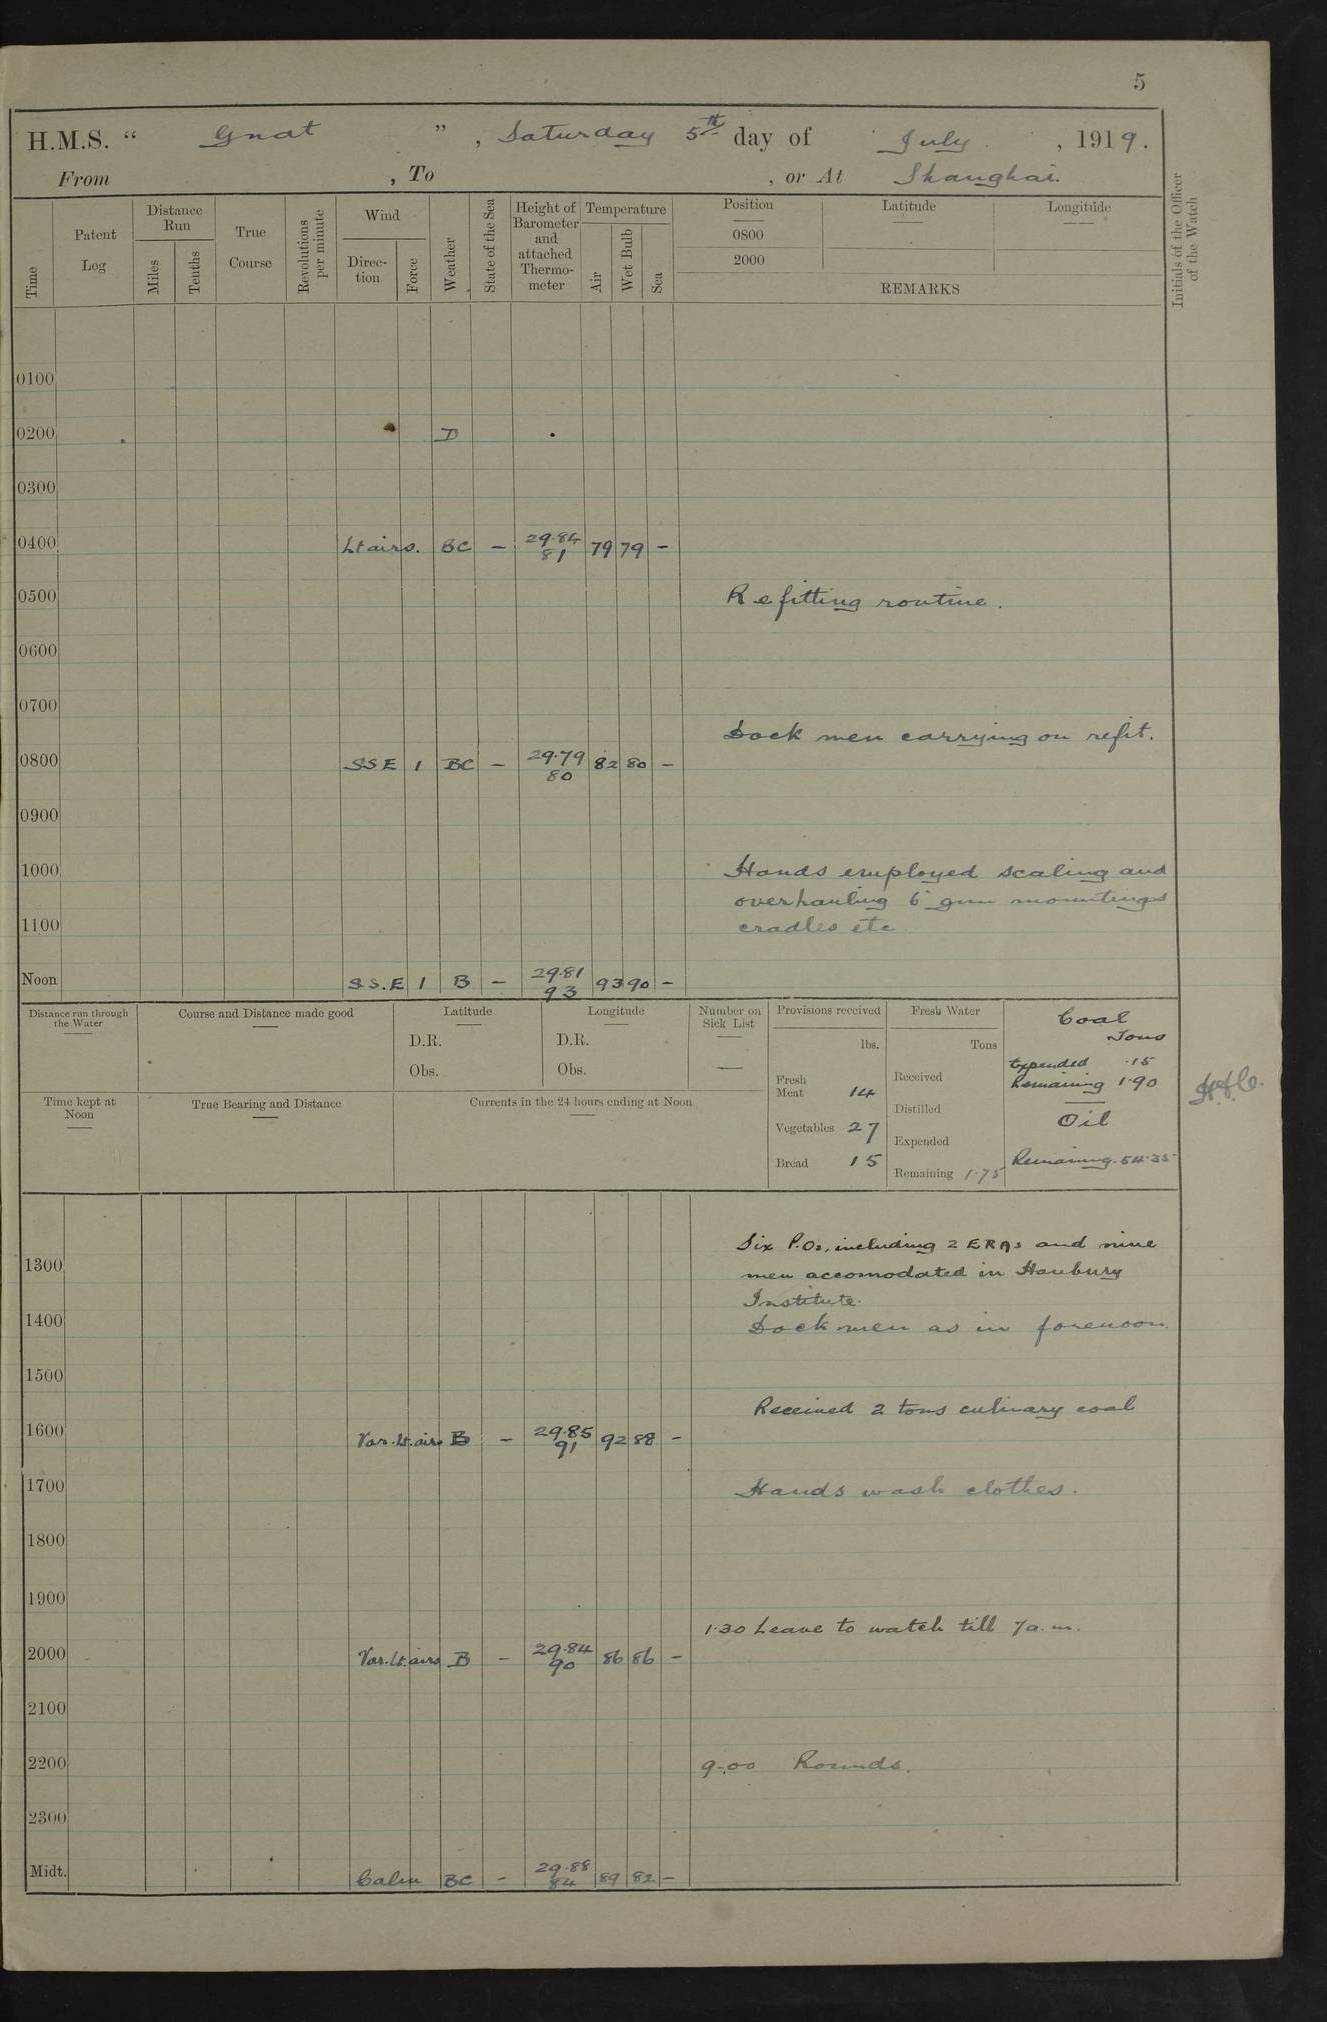 5
H.M.S. “ Gnat ”, Saturday 5th day of July, 1919.
From , To , or At Shanghai.
Time
Patent Log
Distance Run
Miles
Tenths
True Course
Revolutions per minute
Wind
Direction
Force
Weather
State of the Sea
Height of Barometer and attached Thermometer
Temperature
Air
Wet Bulb
Sea
Position
Latitude
Longitude
0800
2000
REMARKS
Initials of the Officer of the Watch
0100
0200 D
0300
0400 Lt airs. BC – 29.84 81 79 79 –
0500 Refitting routine.
0600
0700
Dock men carrying on refit.
0800 SSE 1 BC – 29.79 80 82 80 –
0900
1000 Hands employed scaling and
overhauling 6" gun mountings
1100 cradles etc
Noon S.S.E 1 B – 29.81 93 93 90 –
Distance run through the Water
Course and Distance made good
Latitude
D.R.
Obs.
Longitude
D.R.
Obs.
Number on Sick List
—
Provisions received
lbs.
Fresh Meat 14
Vegetables 27
Bread 15
Fresh Water
Tons
Received
Distilled
Expended
Remaining 1.75
Coal
Tons
Expended .15
Remaining 1.90
Oil
Remaining 54.35
Time kept at Noon
True Bearing and Distance
Currents in the 24 hours ending at Noon
Six P.Os, including 2 ERAs and nine
1300 men accomodated in Hanbury
Institute.
1400 Dock men as in forenoon.
1500
Received 2 tons culinary coal
1600 Var. Lt. airs B – 29.85 91 92 88 –
1700 Hands wash clothes.
1800
1900
1.30 Leave to watch till 7a.m.
2000 Var. Lt. airs B – 29.84 90 86 86 –
2100
2200 9.00 Rounds.
2300
Midt. Calm BC – 29.88 84 89 82 –